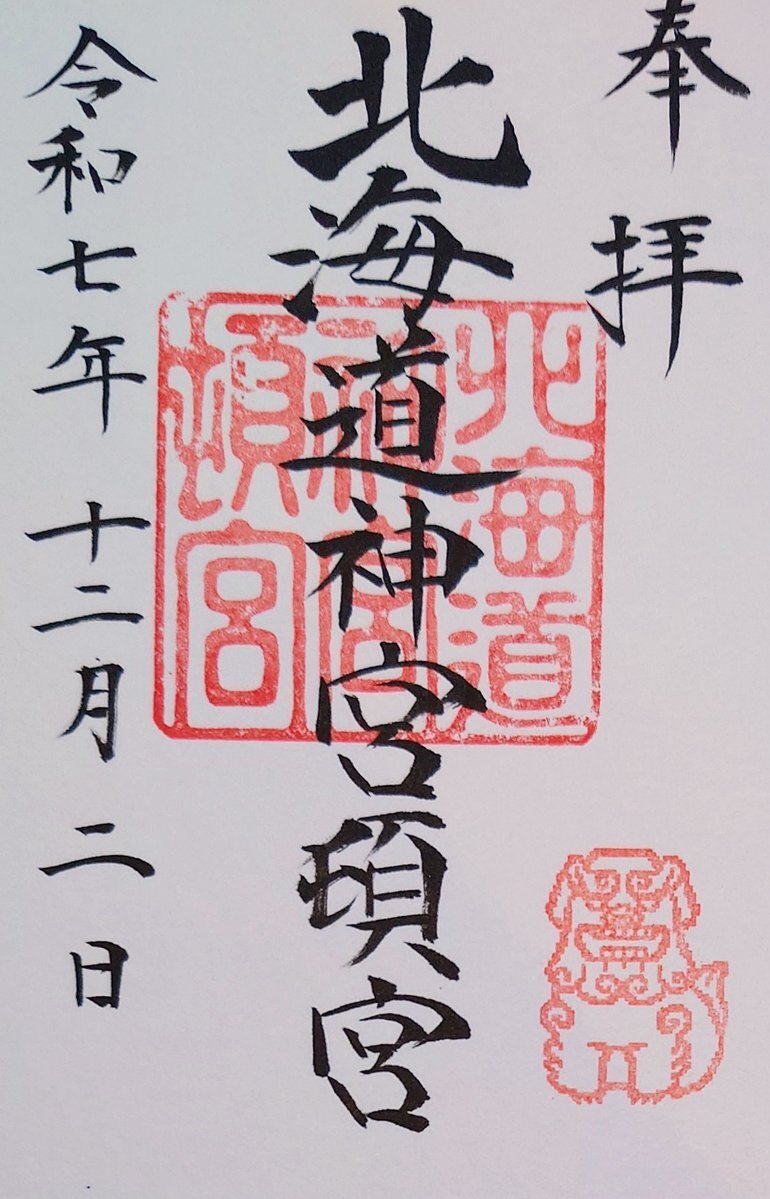 奉拝
北海道神宮頓宮
北海道
神宮
頓宮
令和七年 十二月 二日